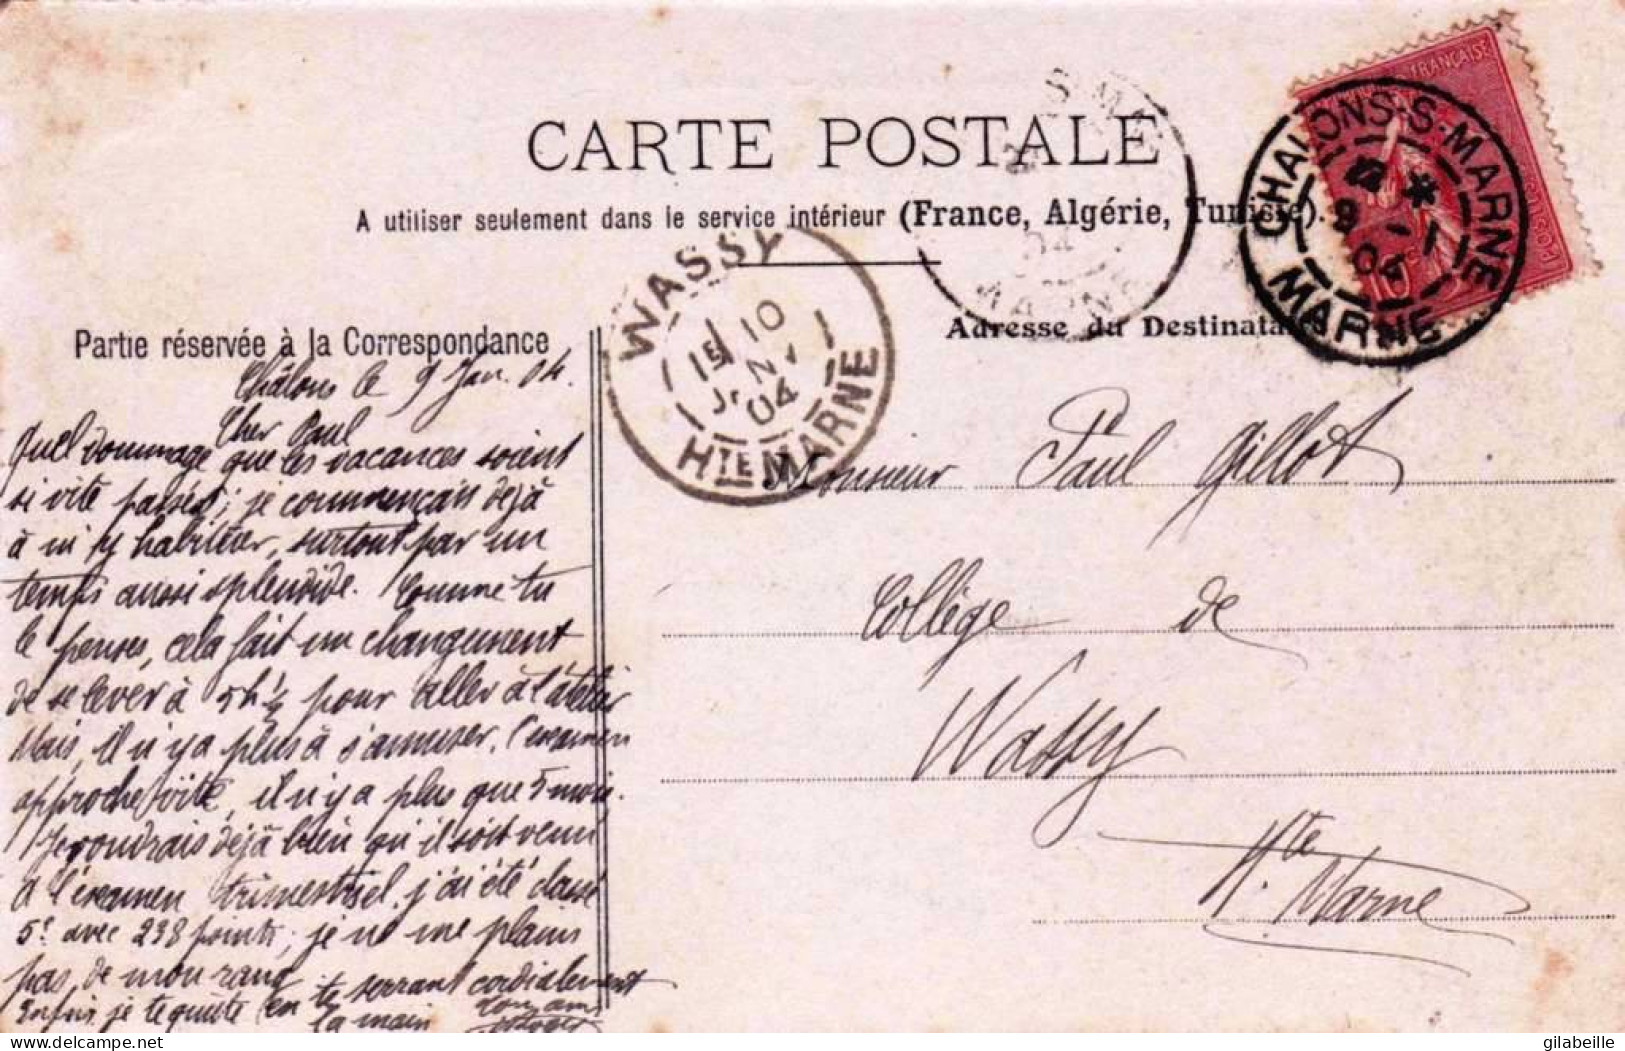 CARTE POSTALE
A utiliser seulement dans le service intérieur (France, Algérie, Tunisie).
Partie réservée à la Correspondance
Adresse du Destinataire
FRANÇAISE
POSTES
10
CHALONS-S-MARNE
9 - 1
04
MARNE
S-M
04
MARNE
WASSY
15 10
JANV
04
HTE MARNE
Châlons le 9 Jan. 04.
Cher Paul
Quel dommage que les vacances soient
si vite passées; je commençais déjà
à m'y habituer, surtout par un
temps aussi splendide. Comme tu
le penses, cela fait un changement
de se lever à 5h ½ pour aller à l'atelier
Mais, il n'y a plus à s'amuser, l'examen
approche vite, il n'y a plus que 5 mois.
Je voudrais déjà bien qu'il soit venu
A l'examen trimestriel, j'ai été classé
5e avec 238 points; je ne me plains
pas, de mon rang
Enfin je te quitte en te serrant cordialement
la main
Ton ami
Monsieur Paul Gillot
Collège de
Wassy
Hte. Marne
delcampe.net
gilabeille